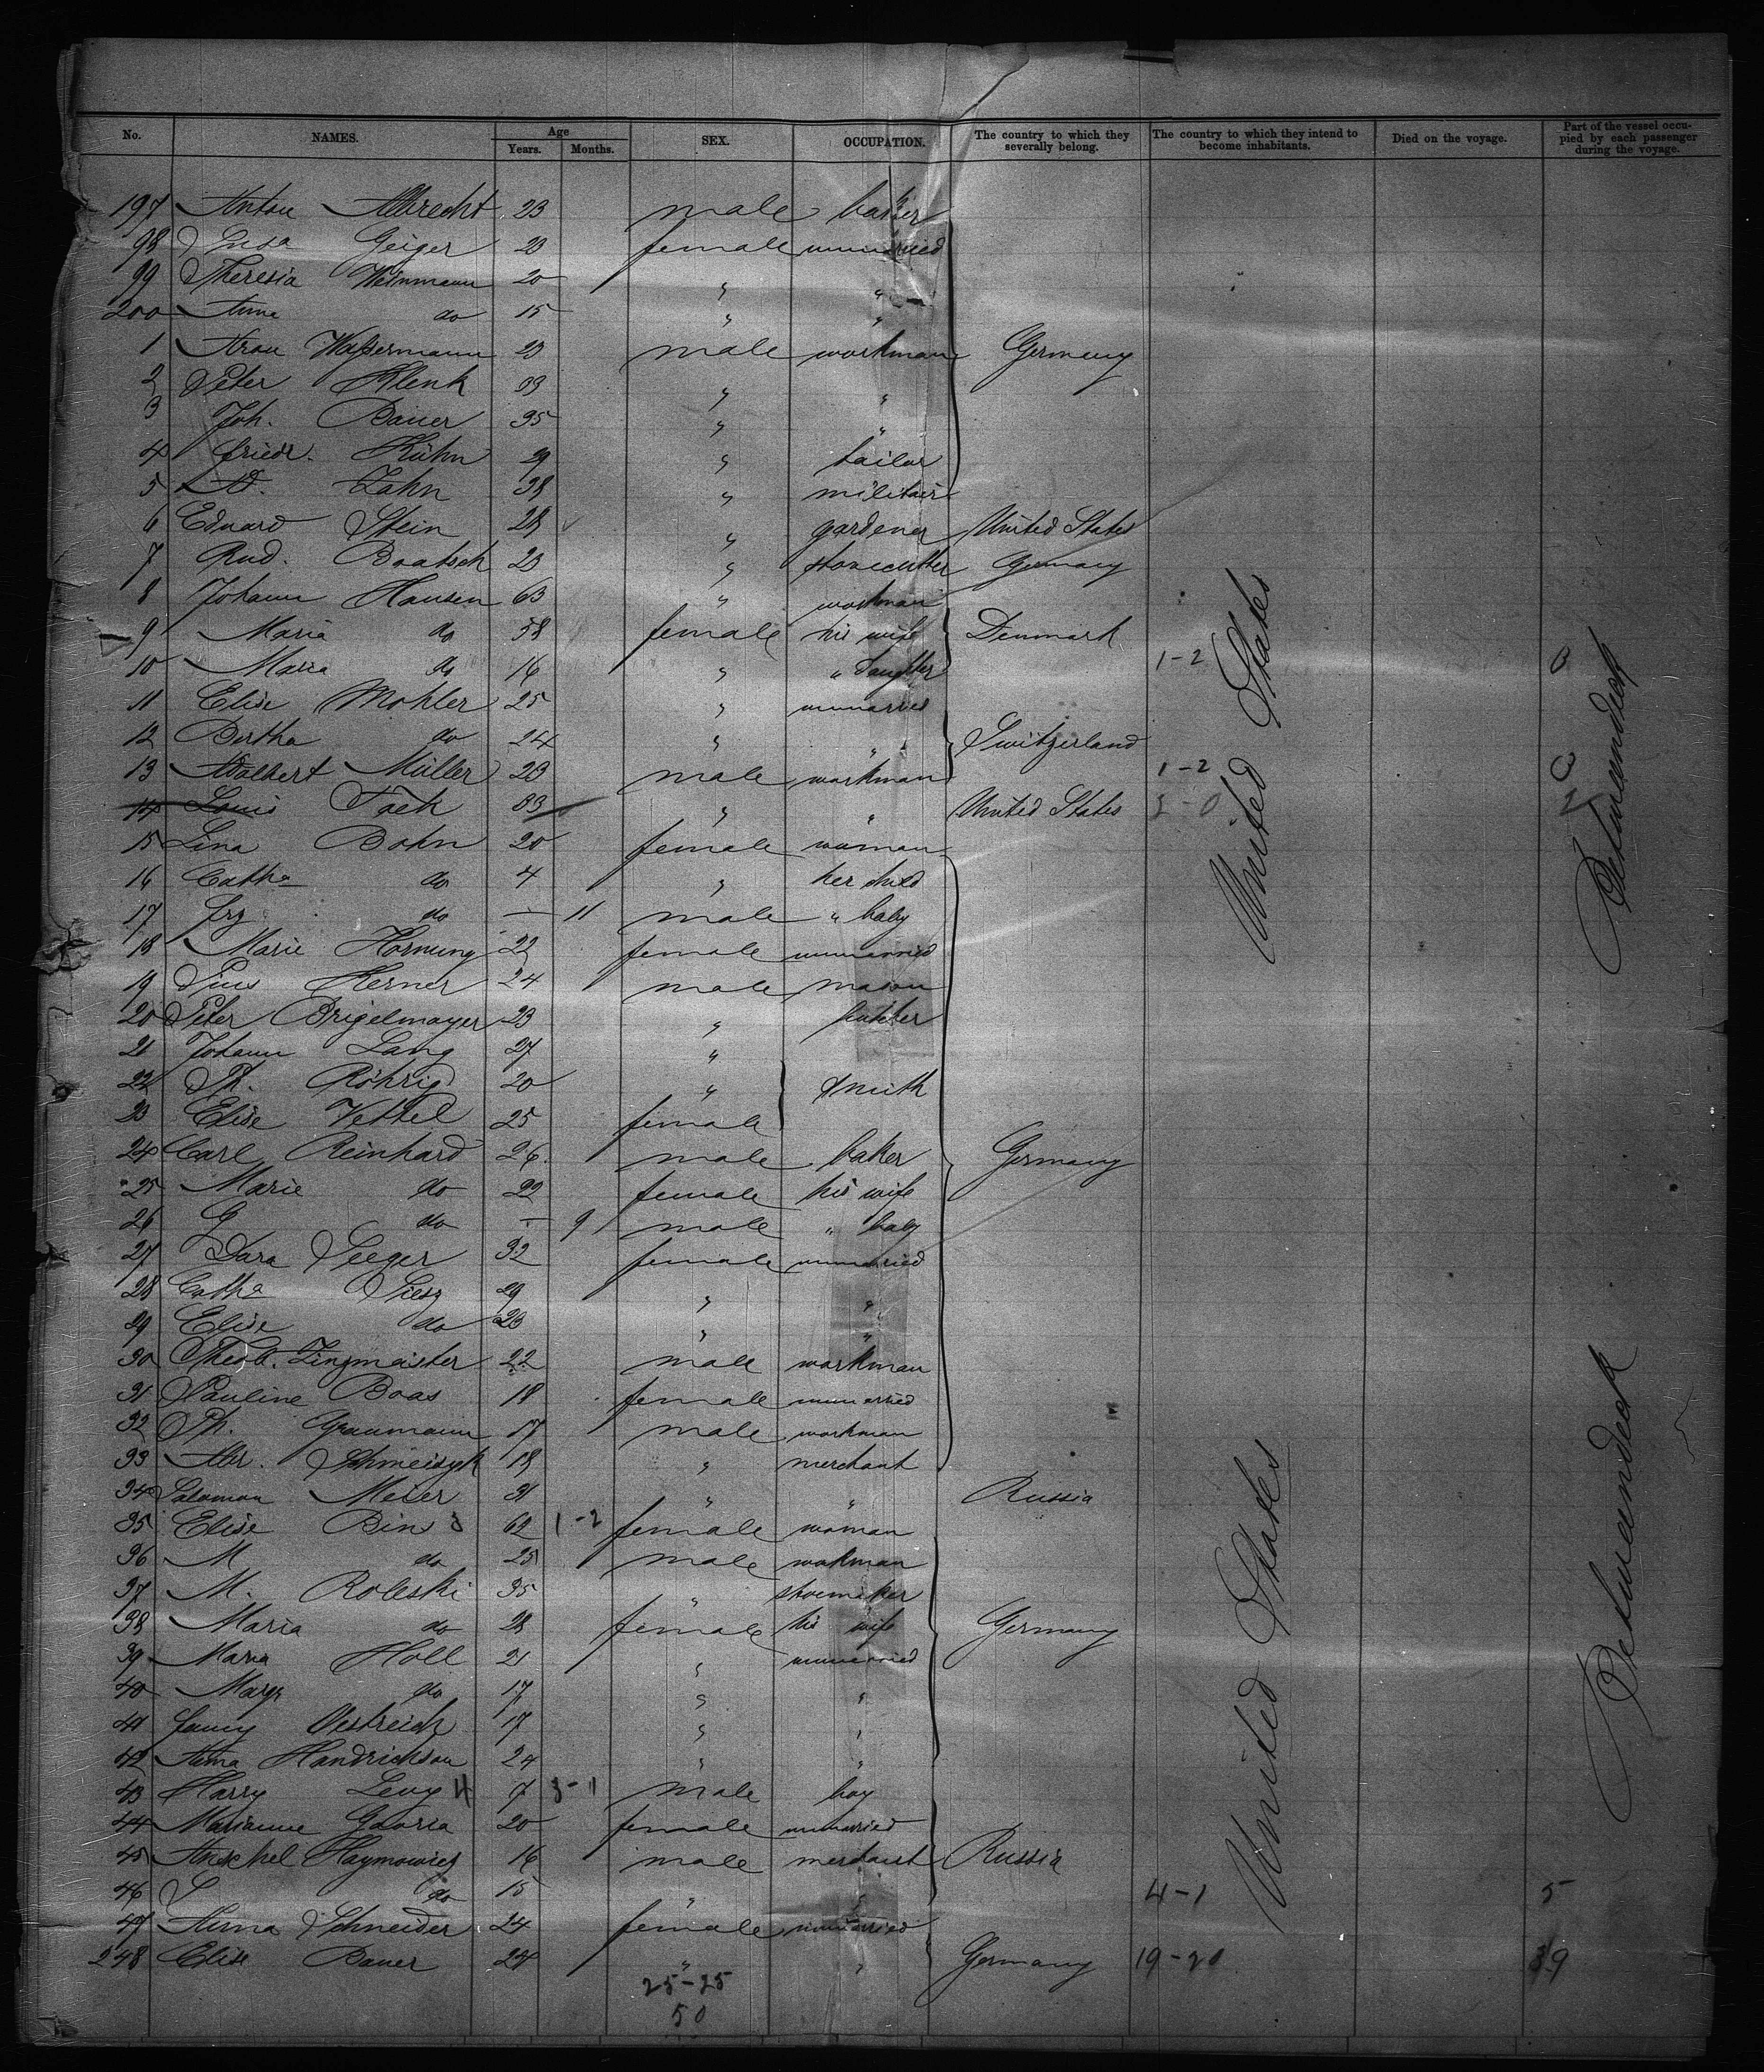 No. NAMES. Age Years. Months. SEX. OCCUPATION. The country to which they severally belong. The country to which they intend to become inhabitants. Died on the voyage. Part of the vessel occupied by each passenger during the voyage.
197 Anton Albrecht 23 male baker
98 Geiger 23 female unmarried
99 Theresia Weinmann 20 " "
200 Anna do 15 " "
1 Aron Wassermann 23 male workman Germany
2 Peter Klenk 33 " "
3 Joh. Bauer 35 " "
4 Friedr. Kühn 29 " tailor
5 Ad. Zahn 38 " militair
6 Eduard Stein 28 " gardener United States
7 Rud. Baatsch 23 " stonecutter Germany
8 Johann Hansen 63 " workman
9 Maria do 58 female his wife Denmark
10 Maria do 16 " " daughter 1-2 3
11 Elise Mohler 25 " unmarried
12 Bertha do 24 " " " Switzerland
13 Adalbert Müller 23 male workman 1-2 3
14 Louis Tack 33 " " United States
15 Lina Bohn 20 female woman
16 Catha do 4 " her child
17 Frz do — 11 male " baby
18 Marie Hornung 22 female unmarried
19 Pius Kerner 24 male mason
20 Peter Brigelmayer 23 " butcher
21 Johann Lang 27 "
22 Ph. Röhrig 20 " smith
23 Elise Vettel 25 female
24 Carl Reinhard 26 male baker Germany
25 Marie do 22 female his wife
26 G do — 9 male " baby
27 Dara Seeger 32 female unmarried
28 Catha 29 " "
29 Elise do 23 " "
30 Theob. Zingmaister 22 male workman
31 Pauline Boas 18 female unmarried
32 Ph. Graumann 17 male workman
33 18 " merchant
34 Salomon Meier 31 " " Russia
35 Elise Bin 62 1-2 female woman
36 M do 25 male workman
37 M. Roleski 35 " shoemaker
38 Maria do 28 female his wife Germany
39 Maria Holl 21 " unmarried
40 Margr do 17 " "
41 Fanny Oestreich 17 " "
42 Anna Handrickson 24 " "
43 Harry Levy 4 7 3-1 male boy
44 Marianne 20 female unmarried
45 Anschel Haymowicz 16 male merchant Russia
46 S do 15 " " 4-1 5
47 Anna Schneider 24 female unmarried
248 Elise Bauer 24 " " Germany 19-20 39
25-25
50
United States
United States
Betweendeck
Betweendeck